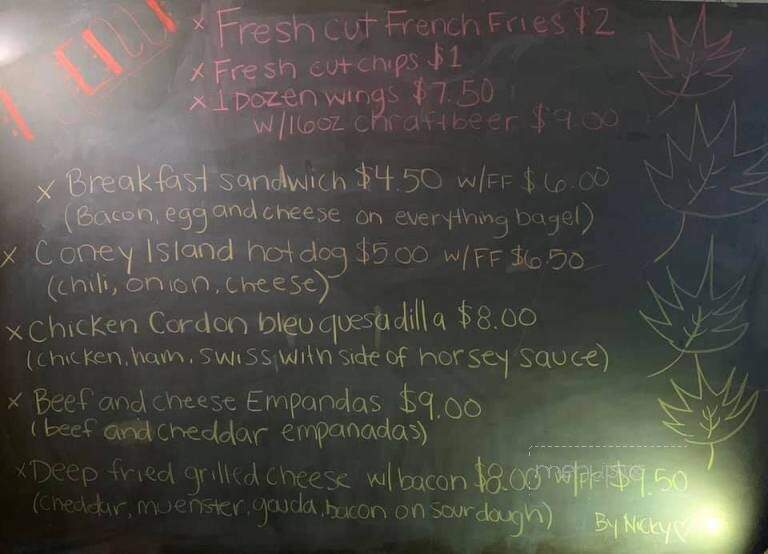 x Fresh cut French Fries $2
x Fresh cut chips $1
x 1 Dozen wings $7.50
w/16oz chraftbeer $9.00
x Breakfast sandwich $4.50 w/FF $6.00
(Bacon, egg and cheese on everything bagel)
x Coney Island hotdog $5.00 w/FF $6.50
(chili, onion, cheese)
x Chicken Cordon bleu quesadilla $8.00
(chicken, ham, swiss, with side of horsey sauce)
x Beef and cheese Empandas $9.00
(beef and cheddar empanadas)
x Deep fried grilled cheese w/ bacon $8.00 w/FF $9.50
(cheddar, muenster, gouda, bacon on sourdough)
By Nicky